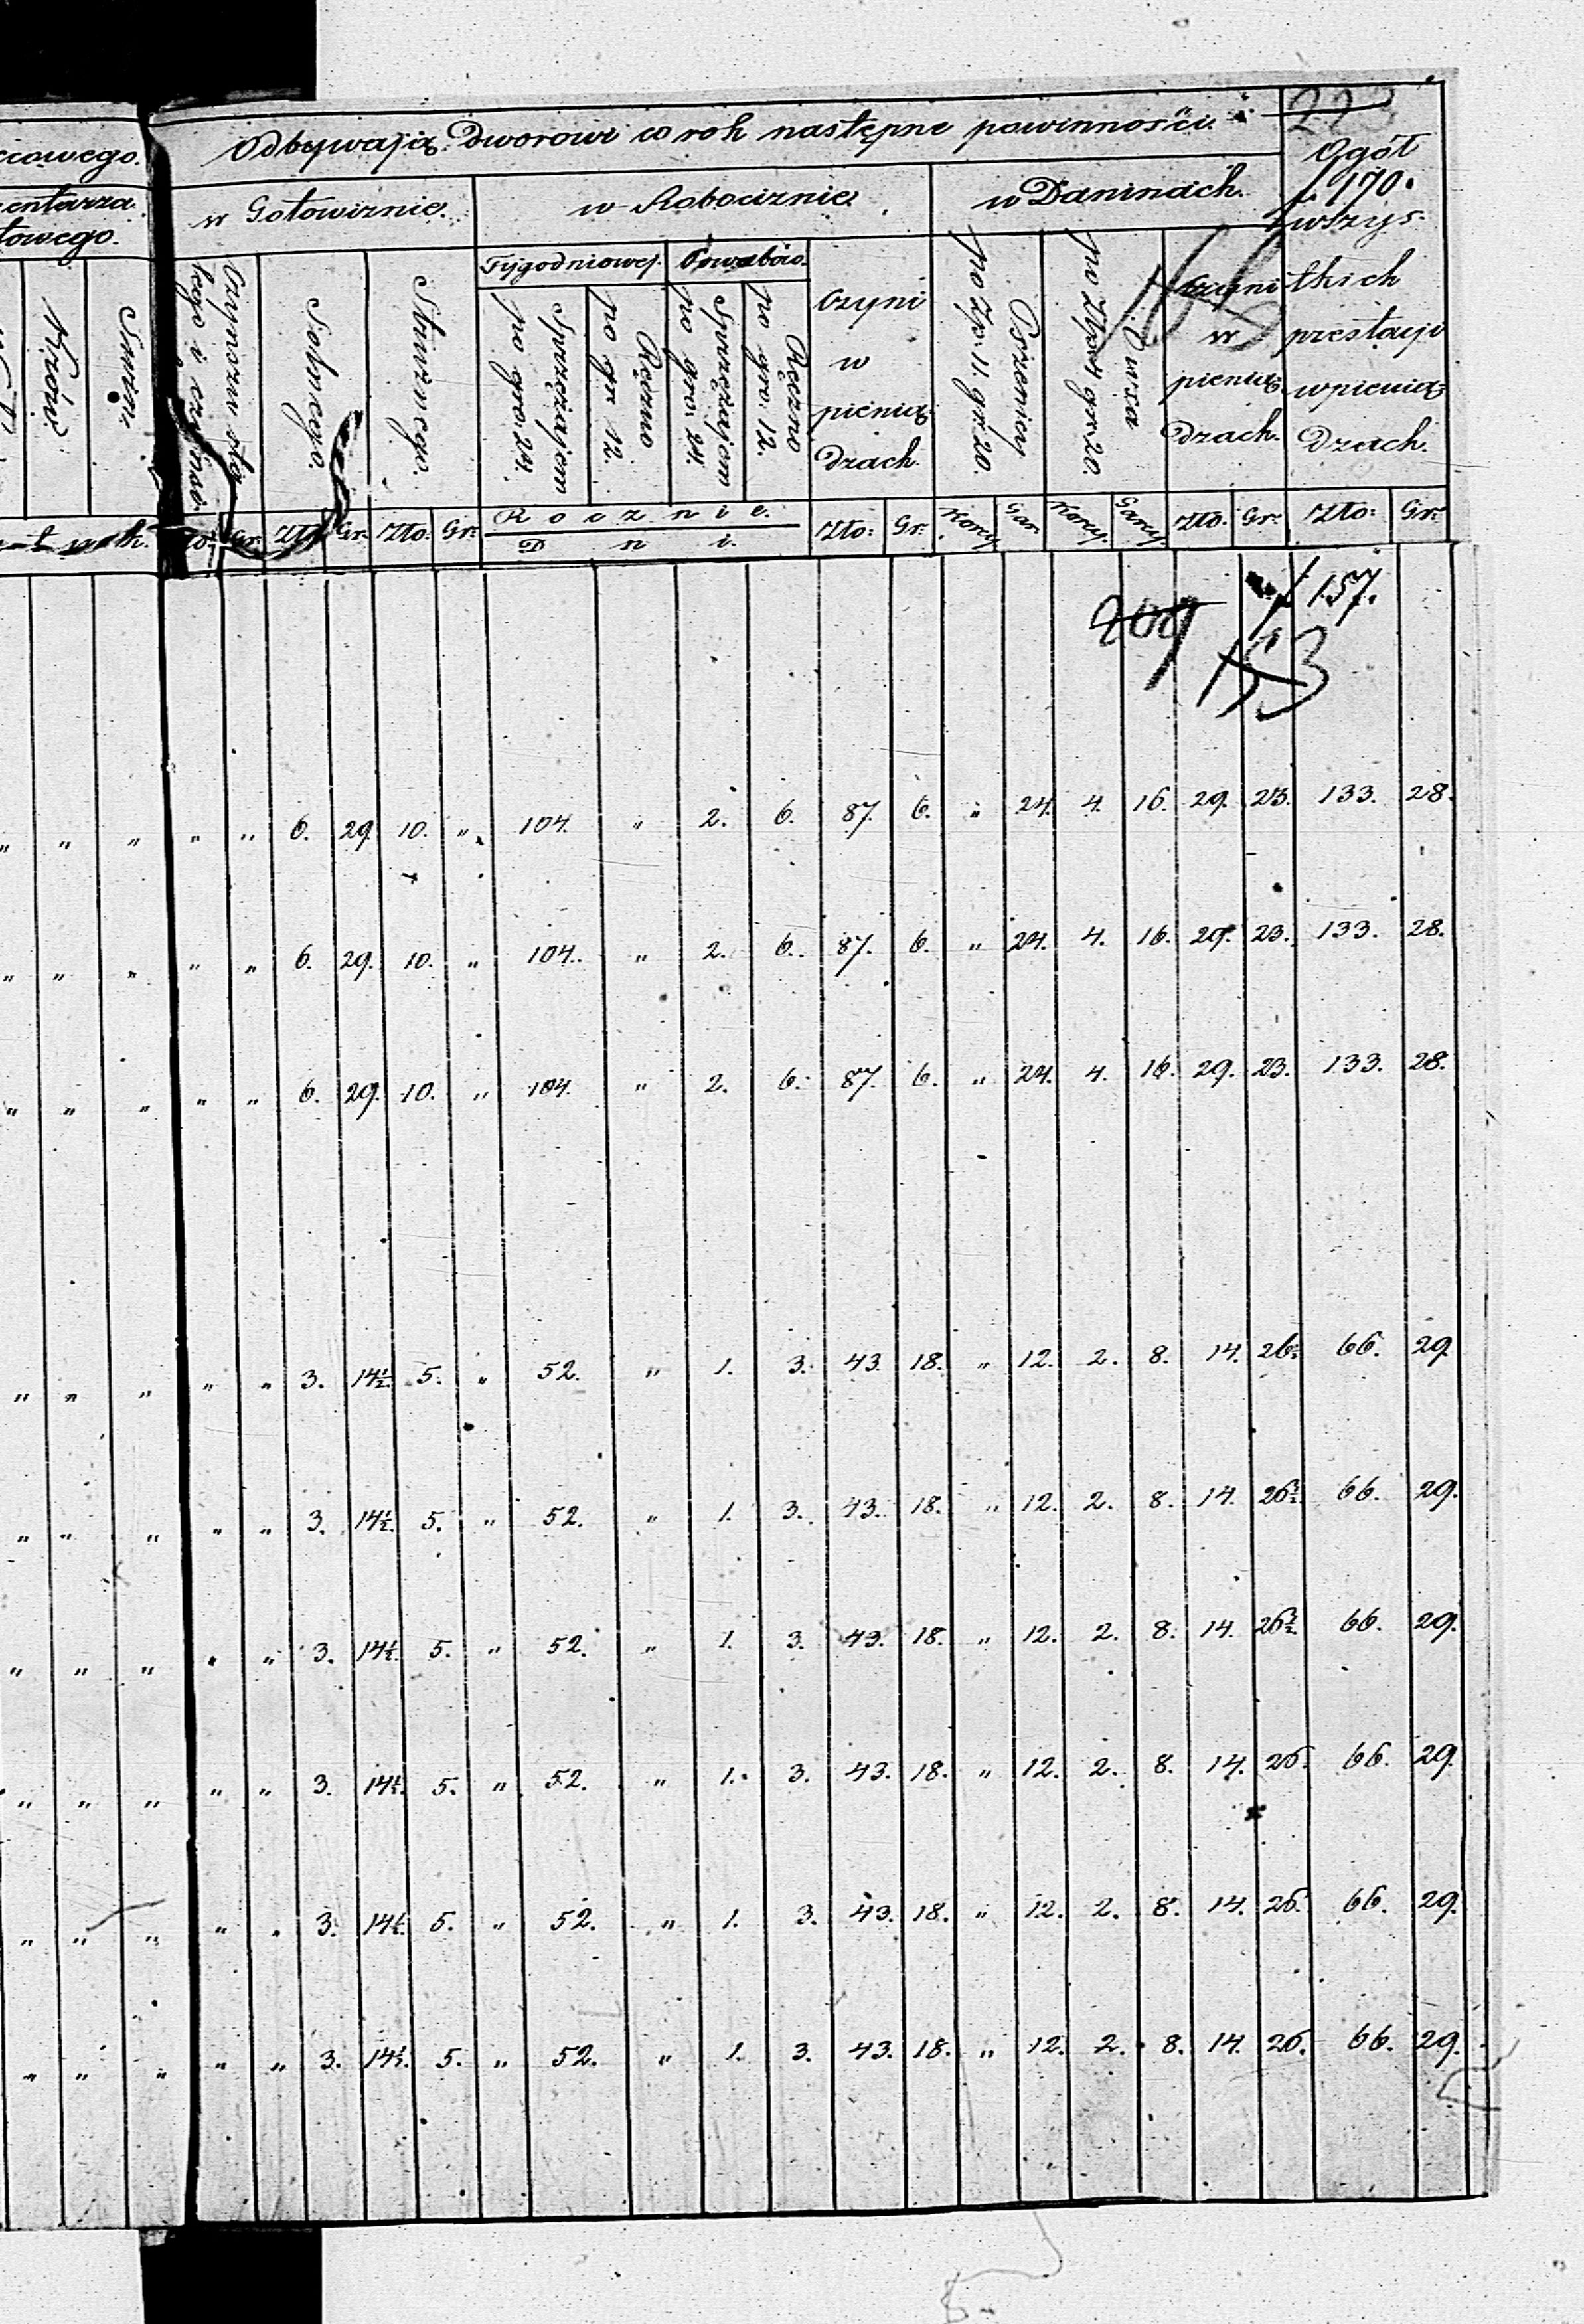 223
Odbywają Dworowi co rok następne powinności.
Ogół
f. 170.
wszys-
tkich
przestacji
w pienią-
dzach.
w Gotowiznie.
w Robociznie.
w Daninach.
Czynszu
kego i
Solnego.
Stróżnego.
Tygodniowej.
Powabów.
Sprzężajem
po gro. 24.
Ręczno
po gr 12.
Sprzężajem
po gro. 24.
Ręczno
po gro. 12.
Czyni
w
pienią-
dzach
Pszenicy
po Złp. 11. gr. 20.
Owsa
po Złp. 4 gr. 20.
Czyni
w
pienią-
dzach.
Krów
Świn.
Gr. Zło. Gr. Zło. Gr. Rocznie. Zło: Gr: Korcy Gar. Korcy. Garcy. Zło. Gr: Zło: Gr:
Dni.
f 157.
209
153
" " " " " 6. 29. 10. " 104. " 2. 6. 87. 6. " 24. 4. 16. 29. 23. 133. 28.
" " " " " 6. 29. 10. " 104. " 2. 6. 87. 6. " 24. 4. 16. 29. 23. 133. 28.
" " " " " 6. 29. 10. " 104. " 2. 6. 87. 6. " 24. 4. 16. 29. 23. 133. 28.
" " " " " 3. 14½. 5. " 52. " 1. 3. 43. 18. " 12. 2. 8. 14. 26½ 66. 29.
" " " " " 3. 14½. 5. " 52. " 1. 3. 43. 18. " 12. 2. 8. 14. 26½. 66. 29.
" " " " " 3. 14½. 5. " 52. " 1. 3. 43. 18. " 12. 2. 8. 14. 26½. 66. 29.
" " " " " 3. 14½. 5. " 52. " 1. 3. 43. 18. " 12. 2. 8. 14. 26. 66. 29.
" " " " " 3. 14½. 5. " 52. " 1. 3. 43. 18. " 12. 2. 8. 14. 26. 66. 29.
" " " " " 3. 14½. 5. " 52. " 1. 3. 43. 18. " 12. 2. 8. 14. 26. 66. 29.